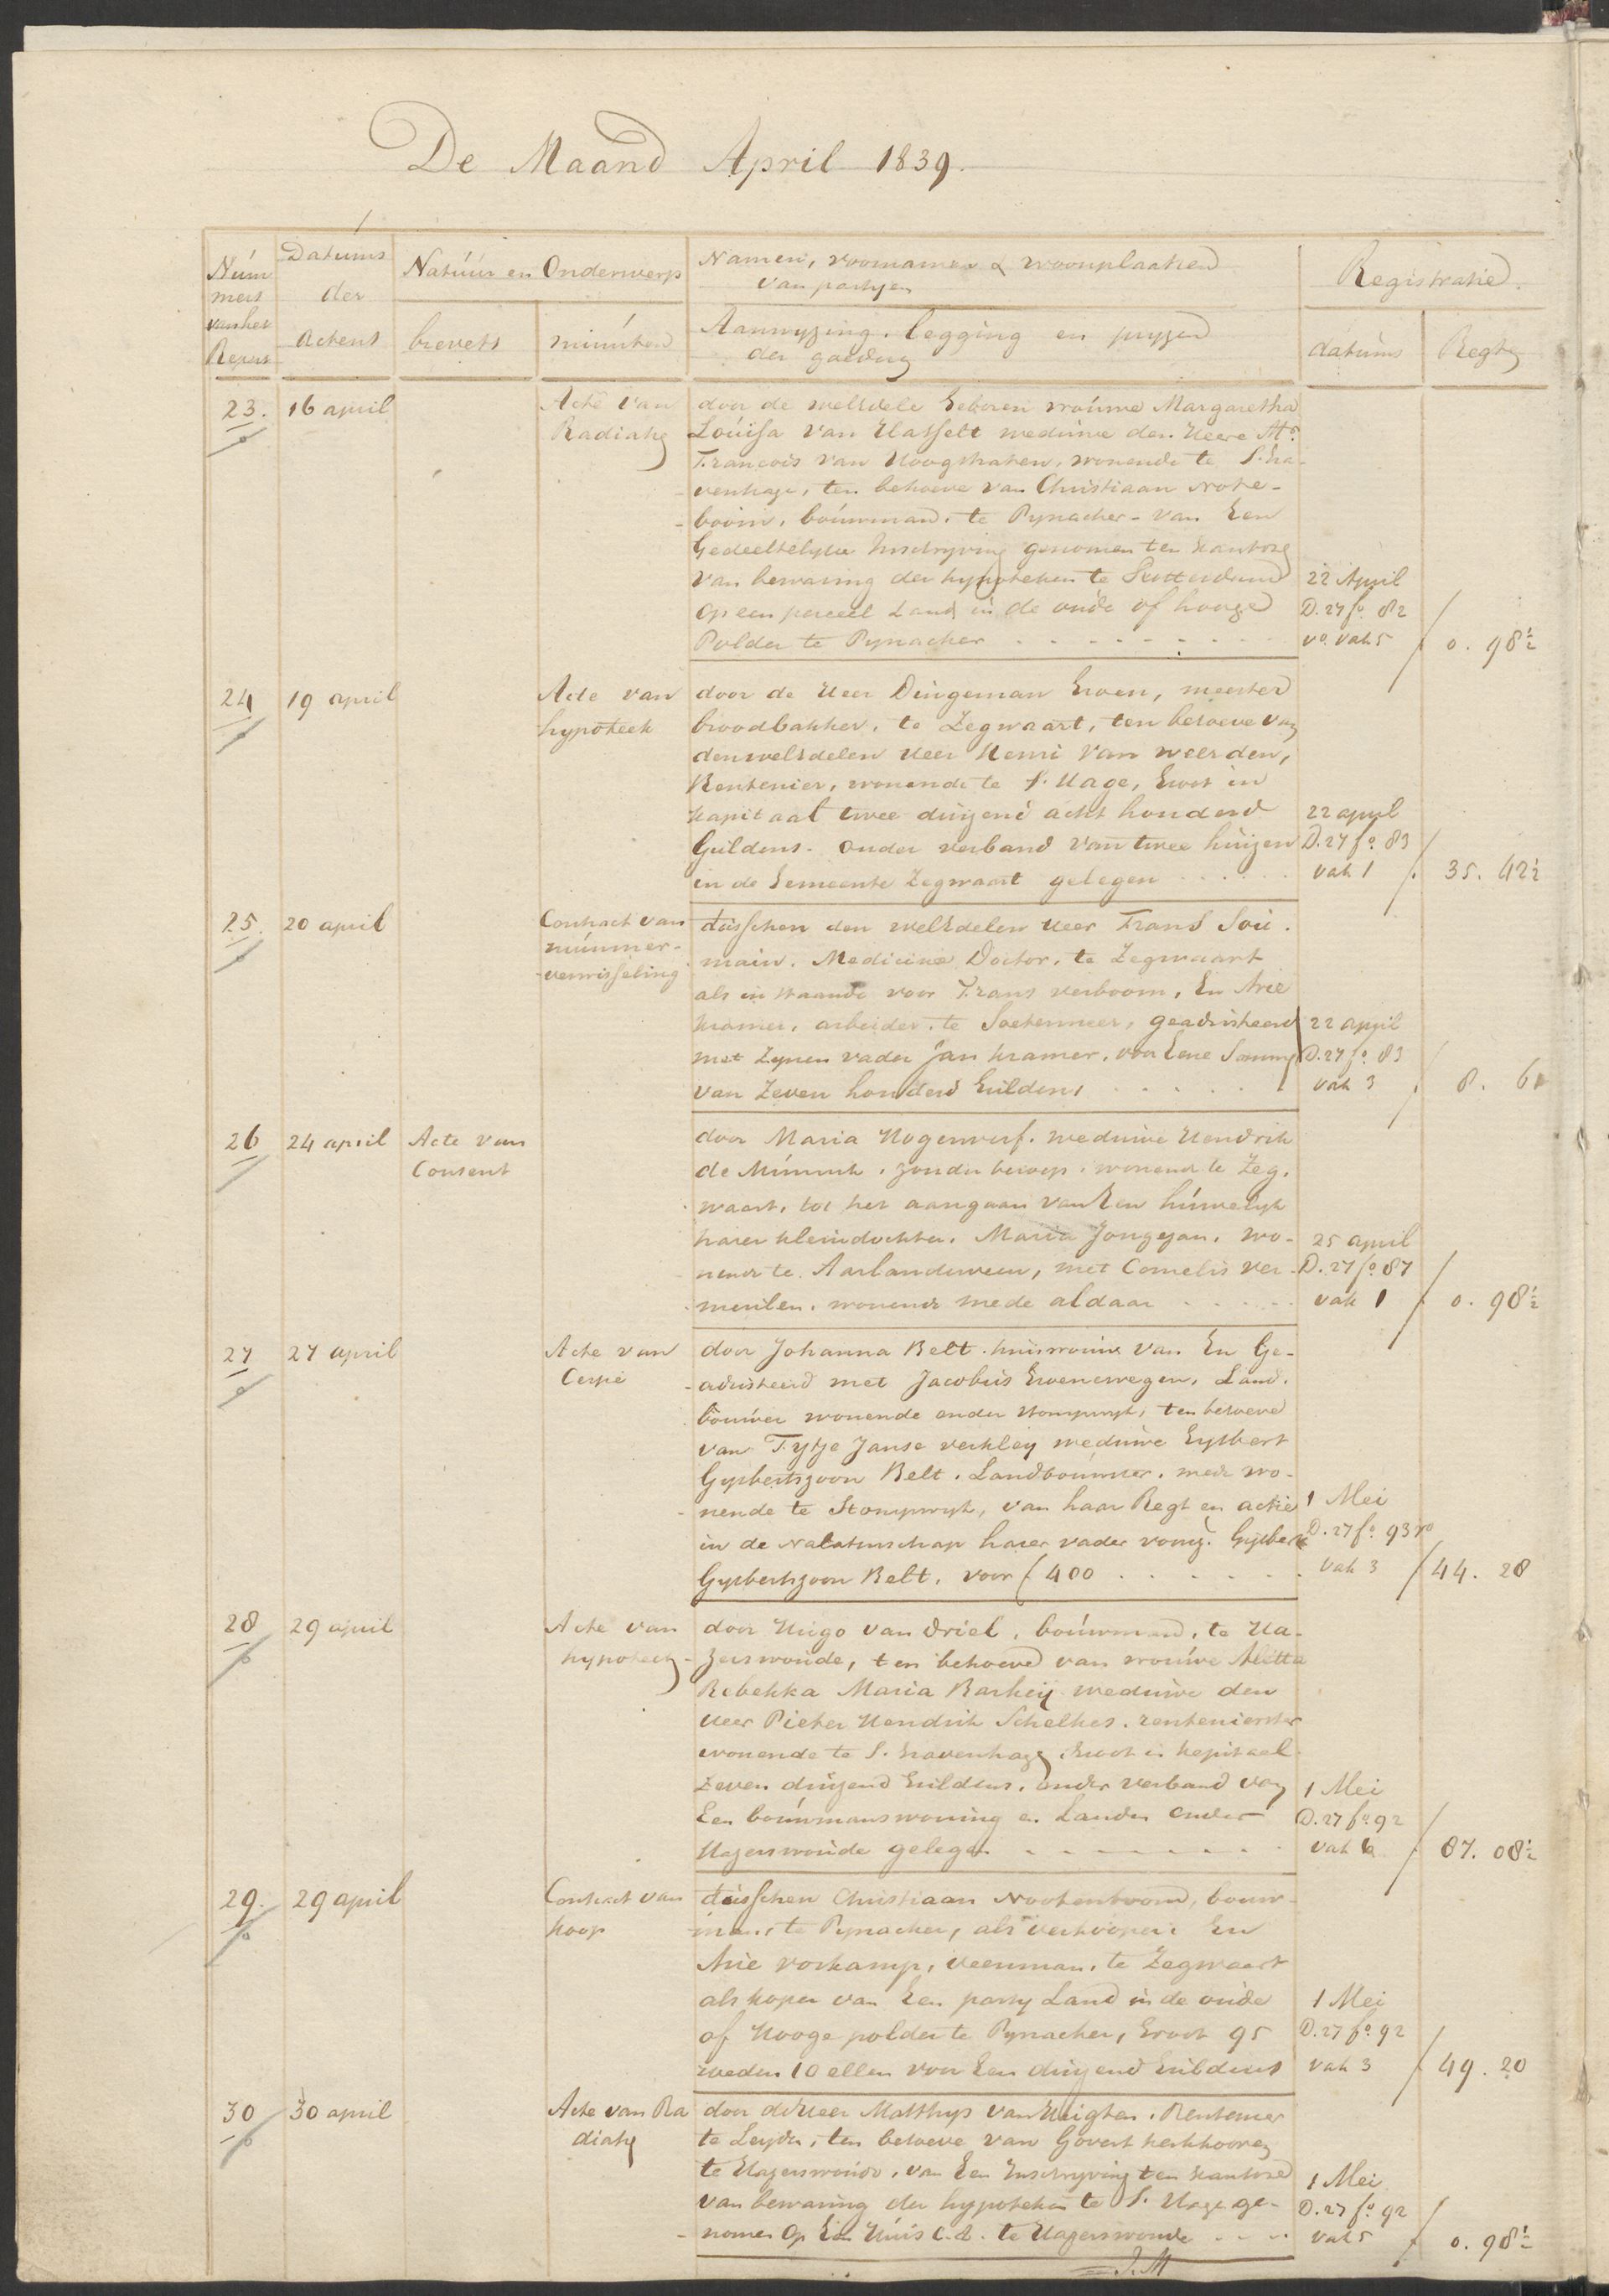 De Maand April 1839.
Num
mers
van het
Repert
Datums
der
Actens
Natuur en Onderwerp
brevets
minuten
Namen, voornamen & woonplaatsen
van partyen
Aanwyzing, legging en pryzen
der goederen
Registratie.
datums
Regten
23. 16 april
Acte van
Radiatie
door de weledele Geboren vrouwe Margaretha
Louisa van Hasselt weduwe den Heere Mr.
Francois van Hoogstraten, wonende te S.Gra-
venhage, ten behoeve van Christiaan Note-
boom, bouwman, te Pynacker - van Een
Gedeeltelyke Inschryving genomen ten kantore
van bewaring der hypoteken te Rotterdam
op een perceel Land in de oude of hooge
Polder te Pynacker
22 April
D. 27 fo. 82
vo. vak 5
f 0. 98½
24 19 april
Acte van
hypoteek
door de Heer Dingeman Groen, meester
broodbakker, te Zegwaart, ten behoeve van
den weledelen Heer Henri van Weerden,
Rentenier, wonende te S. Hage, Groot in
kapitaal twee duizend acht honderd
Guldens. onder verband van twee huizen
in de Gemeente Zegwaart gelegen
22 april
D. 27 fo. 83
vak 1
f 35. 42½
25. 20 april
Contract van
nummer-
verwisseling
tusschen den weledelen Heer Frans Sou-
main. Medicina Doctor, te Zegwaart
als in staande voor Frans verboom, En Arie
Kramer, arbeider, te Soetermeer, geadsisteerd
met Zynen vader Jan Kramer, voor Eene Somme
van Zeven honderd Guldens
22 april
D. 27 fo. 83
vak 3
f 8. 61
26 24 april
Acte van
Consent
door Maria Hogerwerf, weduwe Hendrik
de Munnik, zonder beroep, wonende te Zeg-
waart, tot het aangaan van Een huwelyk
harer kleindochter, Maria Jongejan, wo-
nende te Aarlanderveen, met Cornelis Ver-
meulen, wonende mede aldaar
25 april
D. 27 fo 87
vak 1
f 0. 98½
27 27 april
Acte van
Cessie
door Johanna Belt, huisvrouw van En Ge-
adsisteerd met Jacobus Groenewegen, Land-
bouwer wonende onder Stompwyk, ten behoeve
van Tytje Janse verkley weduwe Gysbert
Gysbertszoon Belt, Landbouwer, mede wo-
nende te Stompwyk, van haar Regt en actie
in de Nalatenschap harer vader voorn. Gysbert
Gysbertszoon Belt, voor f 400
1 Mei
D. 27 fo. 93 ro
vak 3
f 44. 28
28 29 april
Acte van
hypoteek
door Hugo van driel, bouwman, te Ha-
zerswoude, ten behoeve van vrouwe Aletta
Rebekka Maria Barkey weduwe den
Heer Pieter Hendrik Schelkes, rentenierster
wonende te S. Gravenhage, Groot in kapitaal
Zeven duizend Guldens, onder verband van
Een bouwmanswoning en Landen onder
Hazerswoude gelegen
1 Mei
D. 27 fo 92
vak 6
f 87. 08½
29. 29 april
Contract van
koop
tusschen Christiaan Nootenboom, bouw-
man, te Pynacker, als verkooper En
Arie Voskamp, veenman, te Zegwaart
als koper van Een party Land in de oude
of Hooge polder te Pynacker, Groot 95
roeden 10 ellen voor Een duizend Guldens
1 Mei
D. 27 fo. 92
vak 3
f 49. 20
30 30 april
Acte van Ra
diatie
door de Heer Matthys van Rentenier
te Leyden, ten behoeve van Govert kerkhoven
te Hazerswoude, van Een Inschryving ten kantore
van bewaring der hypoteken te S. Hage ge-
nomen Op Een Huis c.a. te Hazerswoude
1 Mei
D. 27 fo 92
vak 5
f 0. 98½
J. M